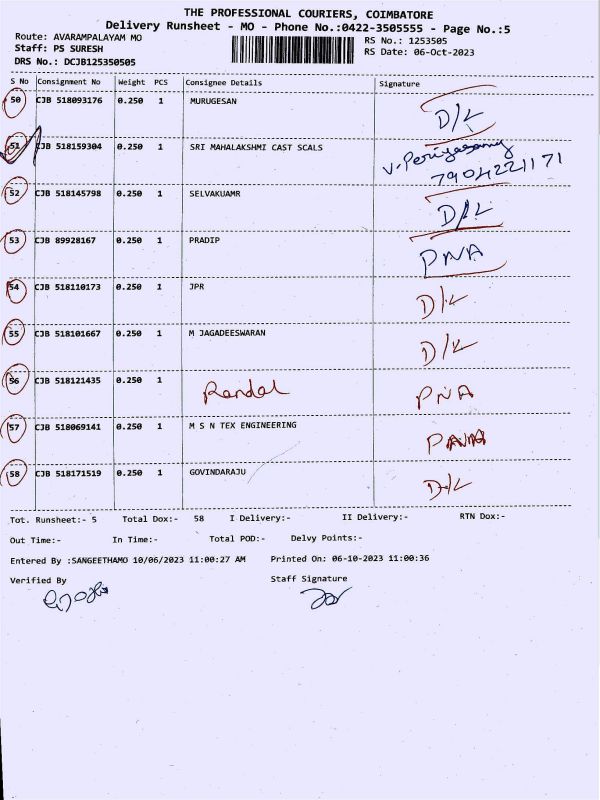 THE PROFESSIONAL COURIERS, COIMBATORE
Delivery Runsheet - MO - Phone No.:0422-3505555 - Page No.:5
Route: AVARAMPALAYAM MO
RS No.: 1253505
Staff: PS SURESH
RS Date: 06-Oct-2023
DRS No.: DCJB125350505
S No Consignment No Weight PCS Consignee Details Signature
50 CJB 518093176 0.250 1 MURUGESAN D/L
51 CJB 518159304 0.250 1 SRI MAHALAKSHMI CAST SCALS V. Periyasamy
7904221171
52 CJB 518145798 0.250 1 SELVAKUAMR D/L
53 CJB 89928167 0.250 1 PRADIP PNA
54 CJB 518110173 0.250 1 JPR D/L
55 CJB 518101667 0.250 1 M JAGADEESWARAN D/L
56 CJB 518121435 0.250 1 PNA
57 CJB 518069141 0.250 1 M S N TEX ENGINEERING
58 CJB 518171519 0.250 1 GOVINDARAJU D/L
Tot. Runsheet:- 5 Total Dox:- 58 I Delivery:- II Delivery:- RTN Dox:-
Out Time:- In Time:- Total POD:- Delvy Points:-
Entered By :SANGEETHAMO 10/06/2023 11:00:27 AM Printed On: 06-10-2023 11:00:36
Verified By Staff Signature